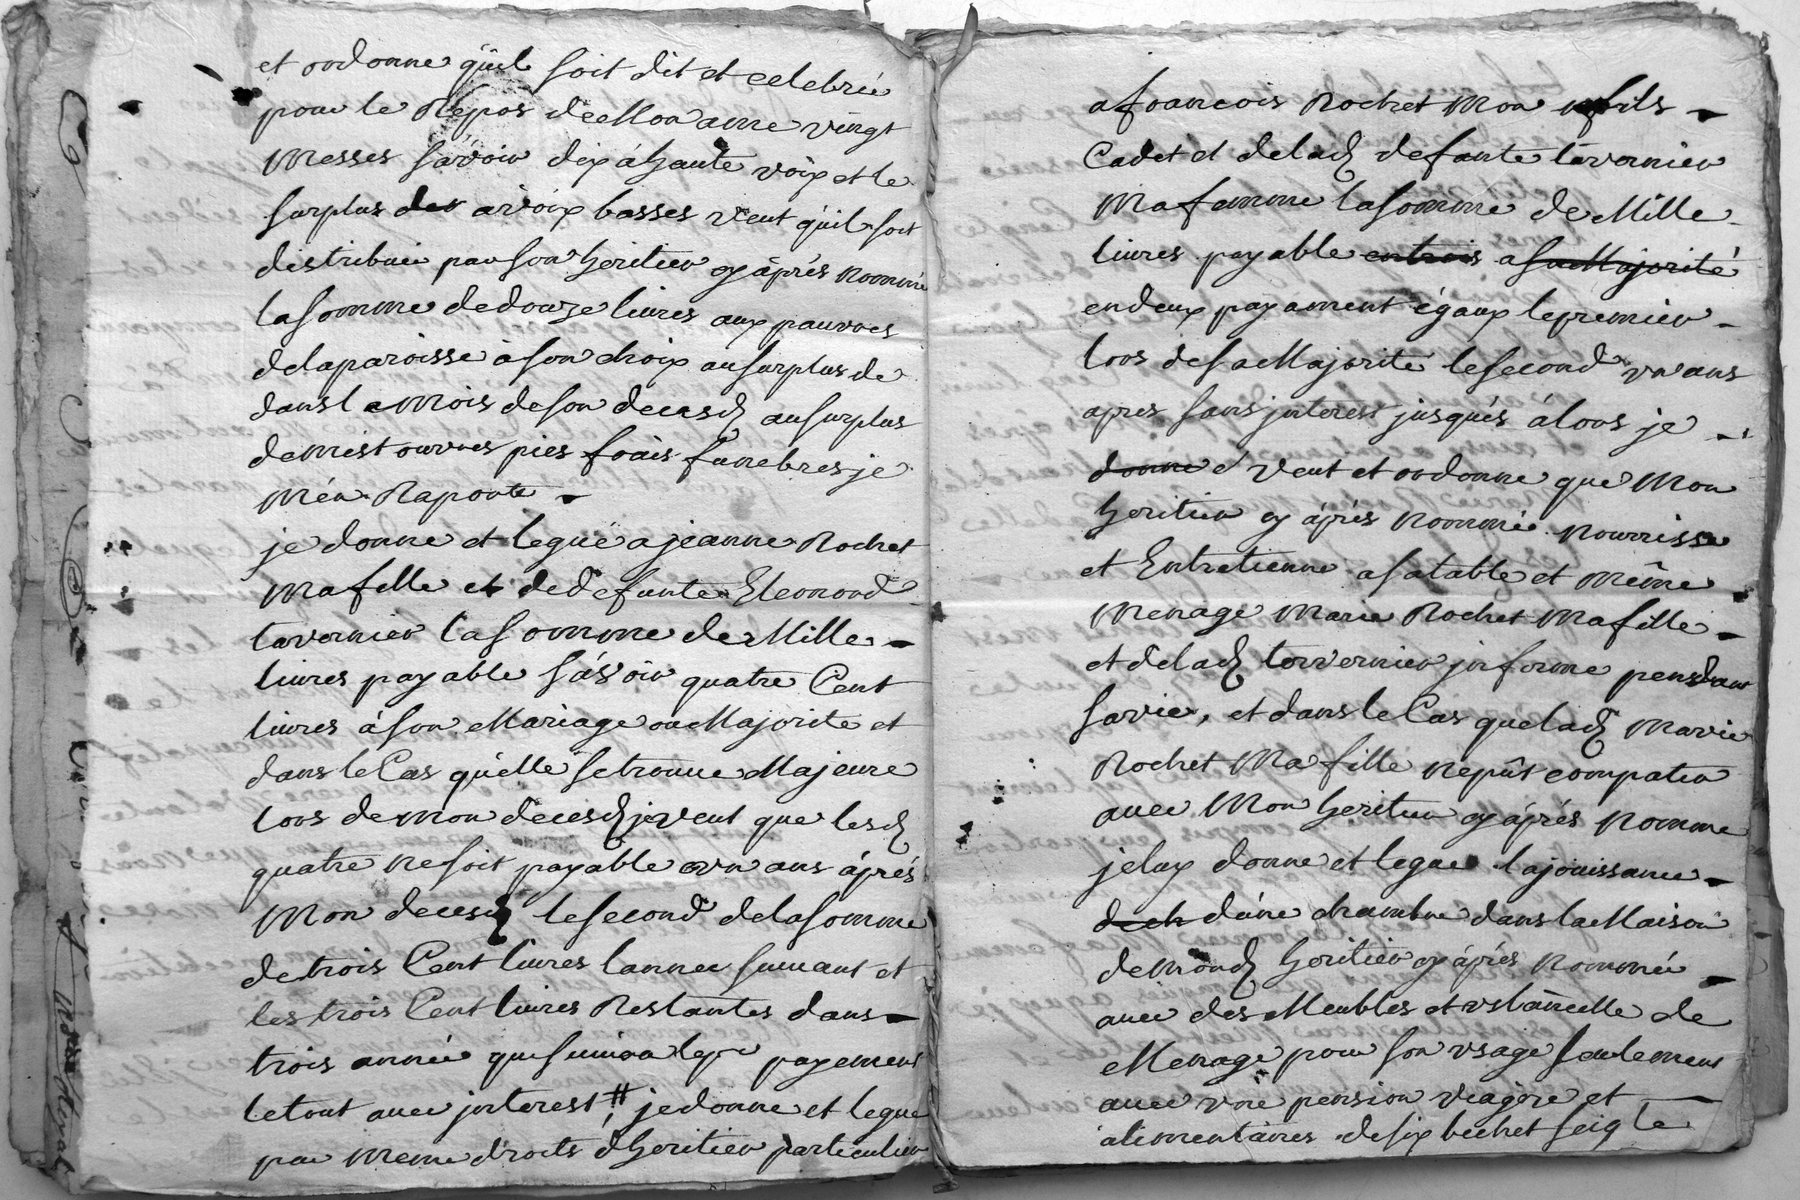 et ordonne quil soit dit et celebrée
pour le Repos de Mon ame vingt
Messes sávoir dix á haute voix et le
surplus der a voix basses veut quil soit
distribuée par son heritier cy áprés nommé
la somme de douze livres aux pauvres
de la paroisse à son choix au surplus de
dans l e mois de son decesd au surplus
de mest ouvres pies frais funebres je
Mén Raporte
je donne et legue a jeanne Rochet
Ma fille et de defunte Eleonord
tavernier la somme de Mille
livres payable sávoir quatre Cent
livres á son Mariage ou Majorite et
dans le Cas quélle se trouve Majeure
lors de mon decesd je veut que lesd
quatre ne soit payable vn ans áprés
Mon decesd le second de la somme
de trois Cent livres lannee suivant et
les trois Cent livres Restantes dans
trois année qui suivra le pr payement
le tout avec jnterest # je donne et legue
par Meme droits d'heritier particulier
a francois Rochet Mon fils
Cadet et de lad defante tavernier
Ma femme la somme de Mille
livres payable en trois a sa Majorité
en deux payament égaux le premier
lors de sa Majorité le second vn ans
apres sans jnterest jusqués álors je
donne é veut et ordonne que Mon
heritier cy áprés nommée nourrisse
et Entretienne a sa table et même
Menage Marie Rochet Ma fille
et de lad tarvernier jnforme pendant
sa vie, et dans le Cas que lad Marie
Rochet Ma fille ne pût compatir
avec Mon heritier cy áprés nomme
je luy donne et legue la jouissance
dech dúne chambre dans la Maison
de mond heritier cy áprés nommée
avec des Meubles et vstancille de
Menage pour son vsage seulement
avec vne pension viagere et
alimentaires de six bichet seigle